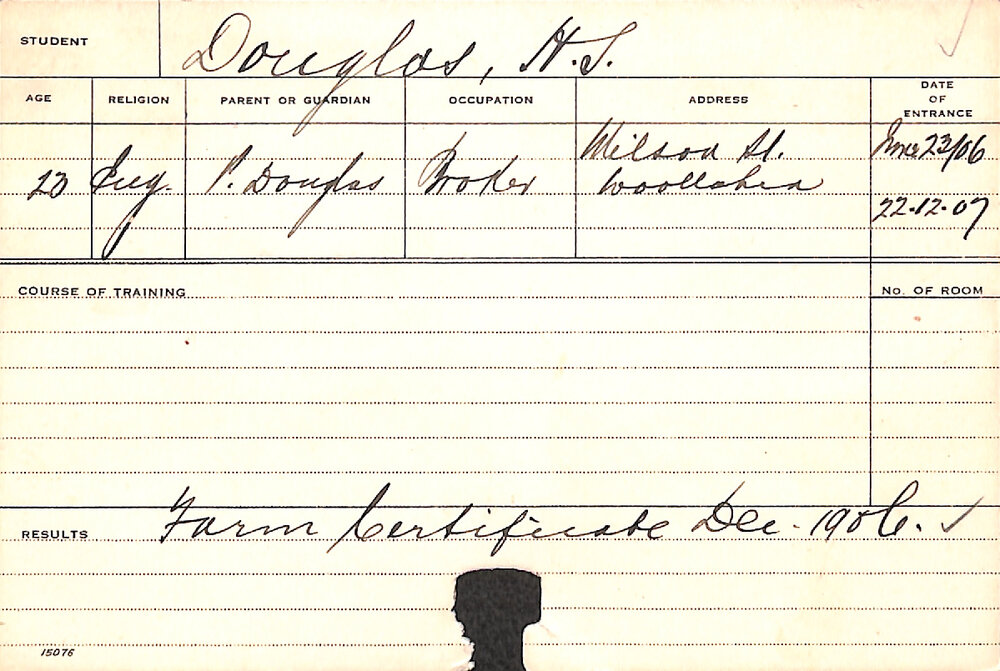 STUDENT Douglas, H.S.
AGE RELIGION PARENT OR GUARDIAN OCCUPATION ADDRESS DATE OF ENTRANCE
23 Eng. P. Douglas Broker Wilson St. June 23/06
Woollahra
22.12.07
COURSE OF TRAINING No. OF ROOM
RESULTS Farm Certificate Dec. 1906. ✓
15076